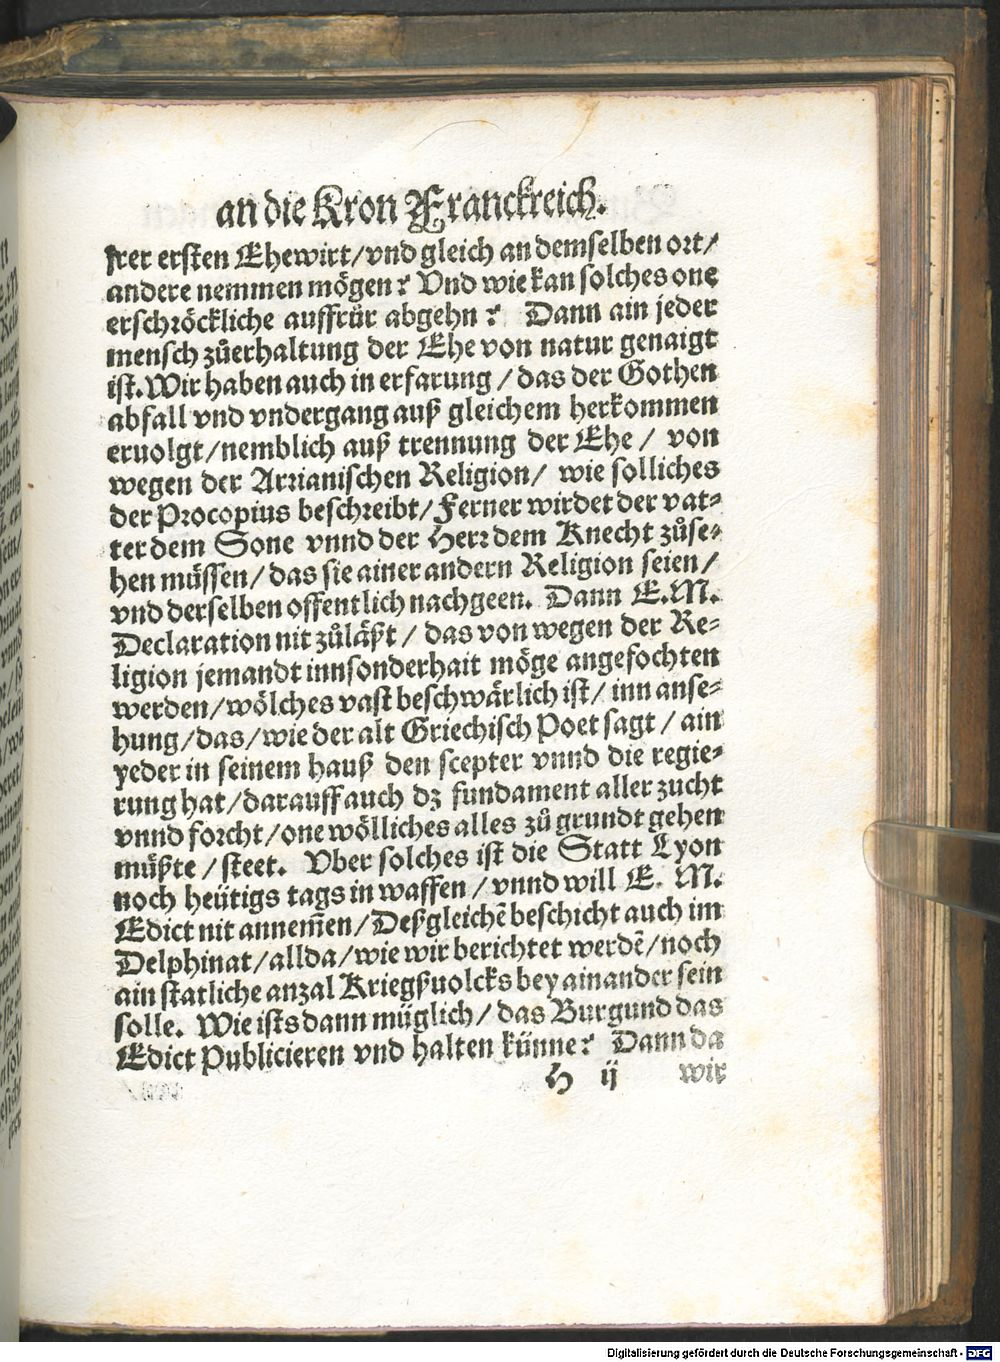 an die Kron Franckreich.
jrer ersten Ehewirt/vnd gleich an demselben ort/
andere nemmen mögen? Vnd wie kan solches one
erschröckliche auffrůr abgehn? Dann ain jeder
mensch zůerhaltung der Ehe von natur genaigt
ist. Wir haben auch in erfarung/das der Gothen
abfall vnd vndergang auß gleichem herkommen
eruolgt/nemblich auß trennung der Ehe/ von
wegen der Arrianischen Religion/ wie solliches
der Procopius beschreibt/Ferner wirdet der vat⸗
ter dem Sone vnnd der Herr dem Knecht zůse⸗
hen müssen/das sie ainer andern Religion seien/
vnd derselben offentlich nachgeen. Dann E.M.
Declaration nit zůläßt/ das von wegen der Re⸗
ligion jemandt innsonderhait möge angefochten
werden/wölches vast beschwärlich ist/inn anse⸗
hung/das/wie der alt Griechisch Poet sagt/ain
yeder in seinem hauß den scepter vnnd die regie⸗
rung hat/darauff auch dz fundament aller zucht
vnnd forcht/one wölliches alles zů grundt gehen
müßte/steet. Vber solches ist die Statt Lyon
noch heütigs tags in waffen/vnnd will E. M.
Edict nit annem̄en/Deßgleichē beschicht auch im
Delphinat/allda/wie wir berichtet werdē/noch
ain statliche anzal Kriegßuolcks bey ainander sein
solle. Wie ists dann müglich/das Burgund das
Edict Publicieren vnd halten künne? Dann da
H ij wir
Digitalisierung gefördert durch die Deutsche Forschungsgemeinschaft - DFG